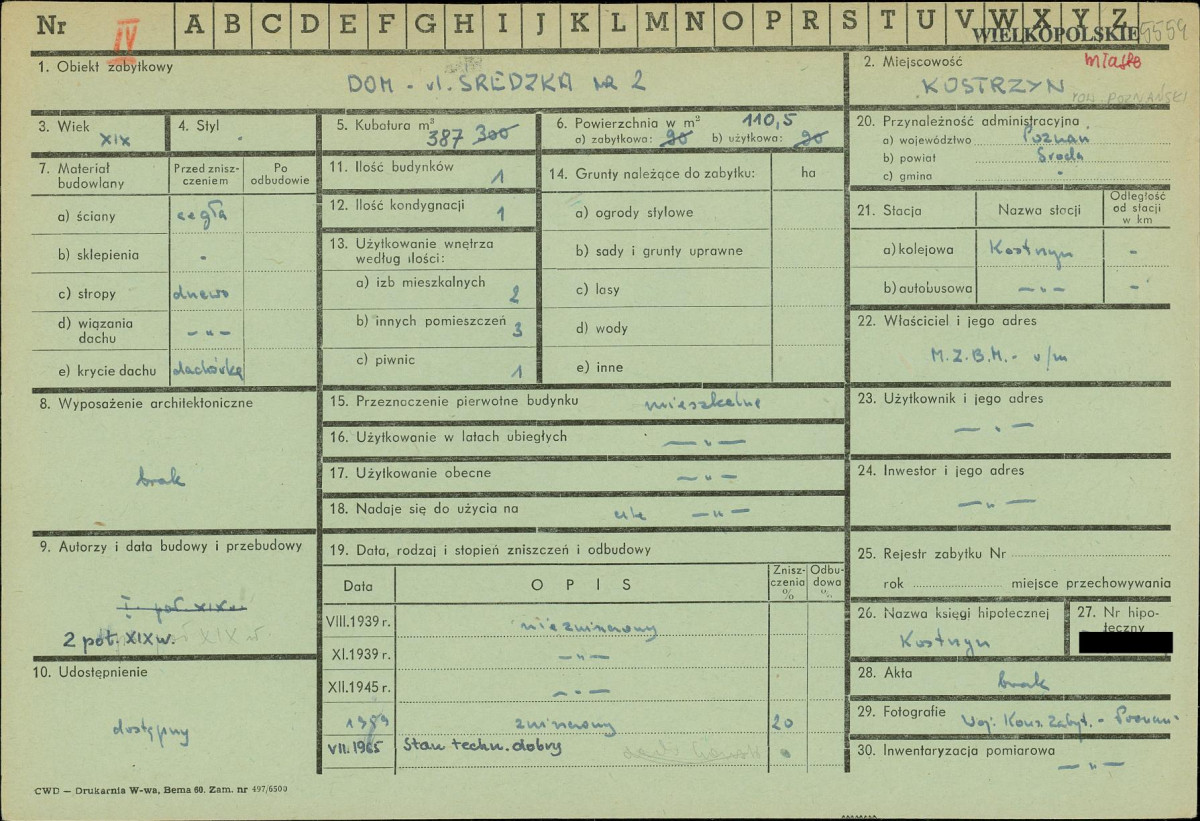 Nr IV A B C D E F G H I J K L M N O P R S T U V W X Y Z
WIELKOPOLSKIE 5559
1. Obiekt zabytkowy
DOM - ul. ŚREDZKA NR 2
2. Miejscowość miasto
KOSTRZYN pow. POZNAŃSKI
3. Wiek
XIX
4. Styl
-
5. Kubatura m³
387 300
6. Powierzchnia w m² 110,5
a) zabytkowa: 90 b) użytkowa: 90
20. Przynależność administracyjna
a) województwo Poznań
b) powiat Środa
c) gmina -
7. Materiał budowlany
Przed zniszczeniem
Po odbudowie
a) ściany cegła
b) sklepienia -
c) stropy drewno
d) wiązania dachu — „ —
e) krycie dachu dachówka
11. Ilość budynków 1
12. Ilość kondygnacji 1
13. Użytkowanie wnętrza
według ilości:
a) izb mieszkalnych 2
b) innych pomieszczeń 3
c) piwnic 1
14. Grunty należące do zabytku: ha
a) ogrody stylowe
b) sady i grunty uprawne
c) lasy
d) wody
e) inne
21. Stacja
Nazwa stacji
Odległość od stacji w km
a) kolejowa Kostrzyn -
b) autobusowa — „ — -
22. Właściciel i jego adres
M.Z.B.M. - w/m
8. Wyposażenie architektoniczne
brak
15. Przeznaczenie pierwotne budynku mieszkalne
16. Użytkowanie w latach ubiegłych — „ —
17. Użytkowanie obecne — „ —
18. Nadaje się do użycia na cele — „ —
23. Użytkownik i jego adres
— „ —
24. Inwestor i jego adres
— „ —
9. Autorzy i data budowy i przebudowy
I. poł. XIX w.
2 poł. XIX w.
19. Data, rodzaj i stopień zniszczeń i odbudowy
Data
OPIS
Zniszczenia %
Odbudowa %
VIII.1939 r. niezniszczony
XI.1939 r. — „ —
XII.1945 r. — „ —
1959 zniszczony 20
VII.1965 Stan techn. dobry
25. Rejestr zabytku Nr
rok miejsce przechowywania
26. Nazwa księgi hipotecznej
Kostrzyn
27. Nr hipoteczny
10. Udostępnienie
dostępny
28. Akta
brak
29. Fotografie Woj. Kons. Zabyt. - Poznań
30. Inwentaryzacja pomiarowa
— „ —
CWD — Drukarnia W-wa, Bema 60. Zam. nr 497/6500